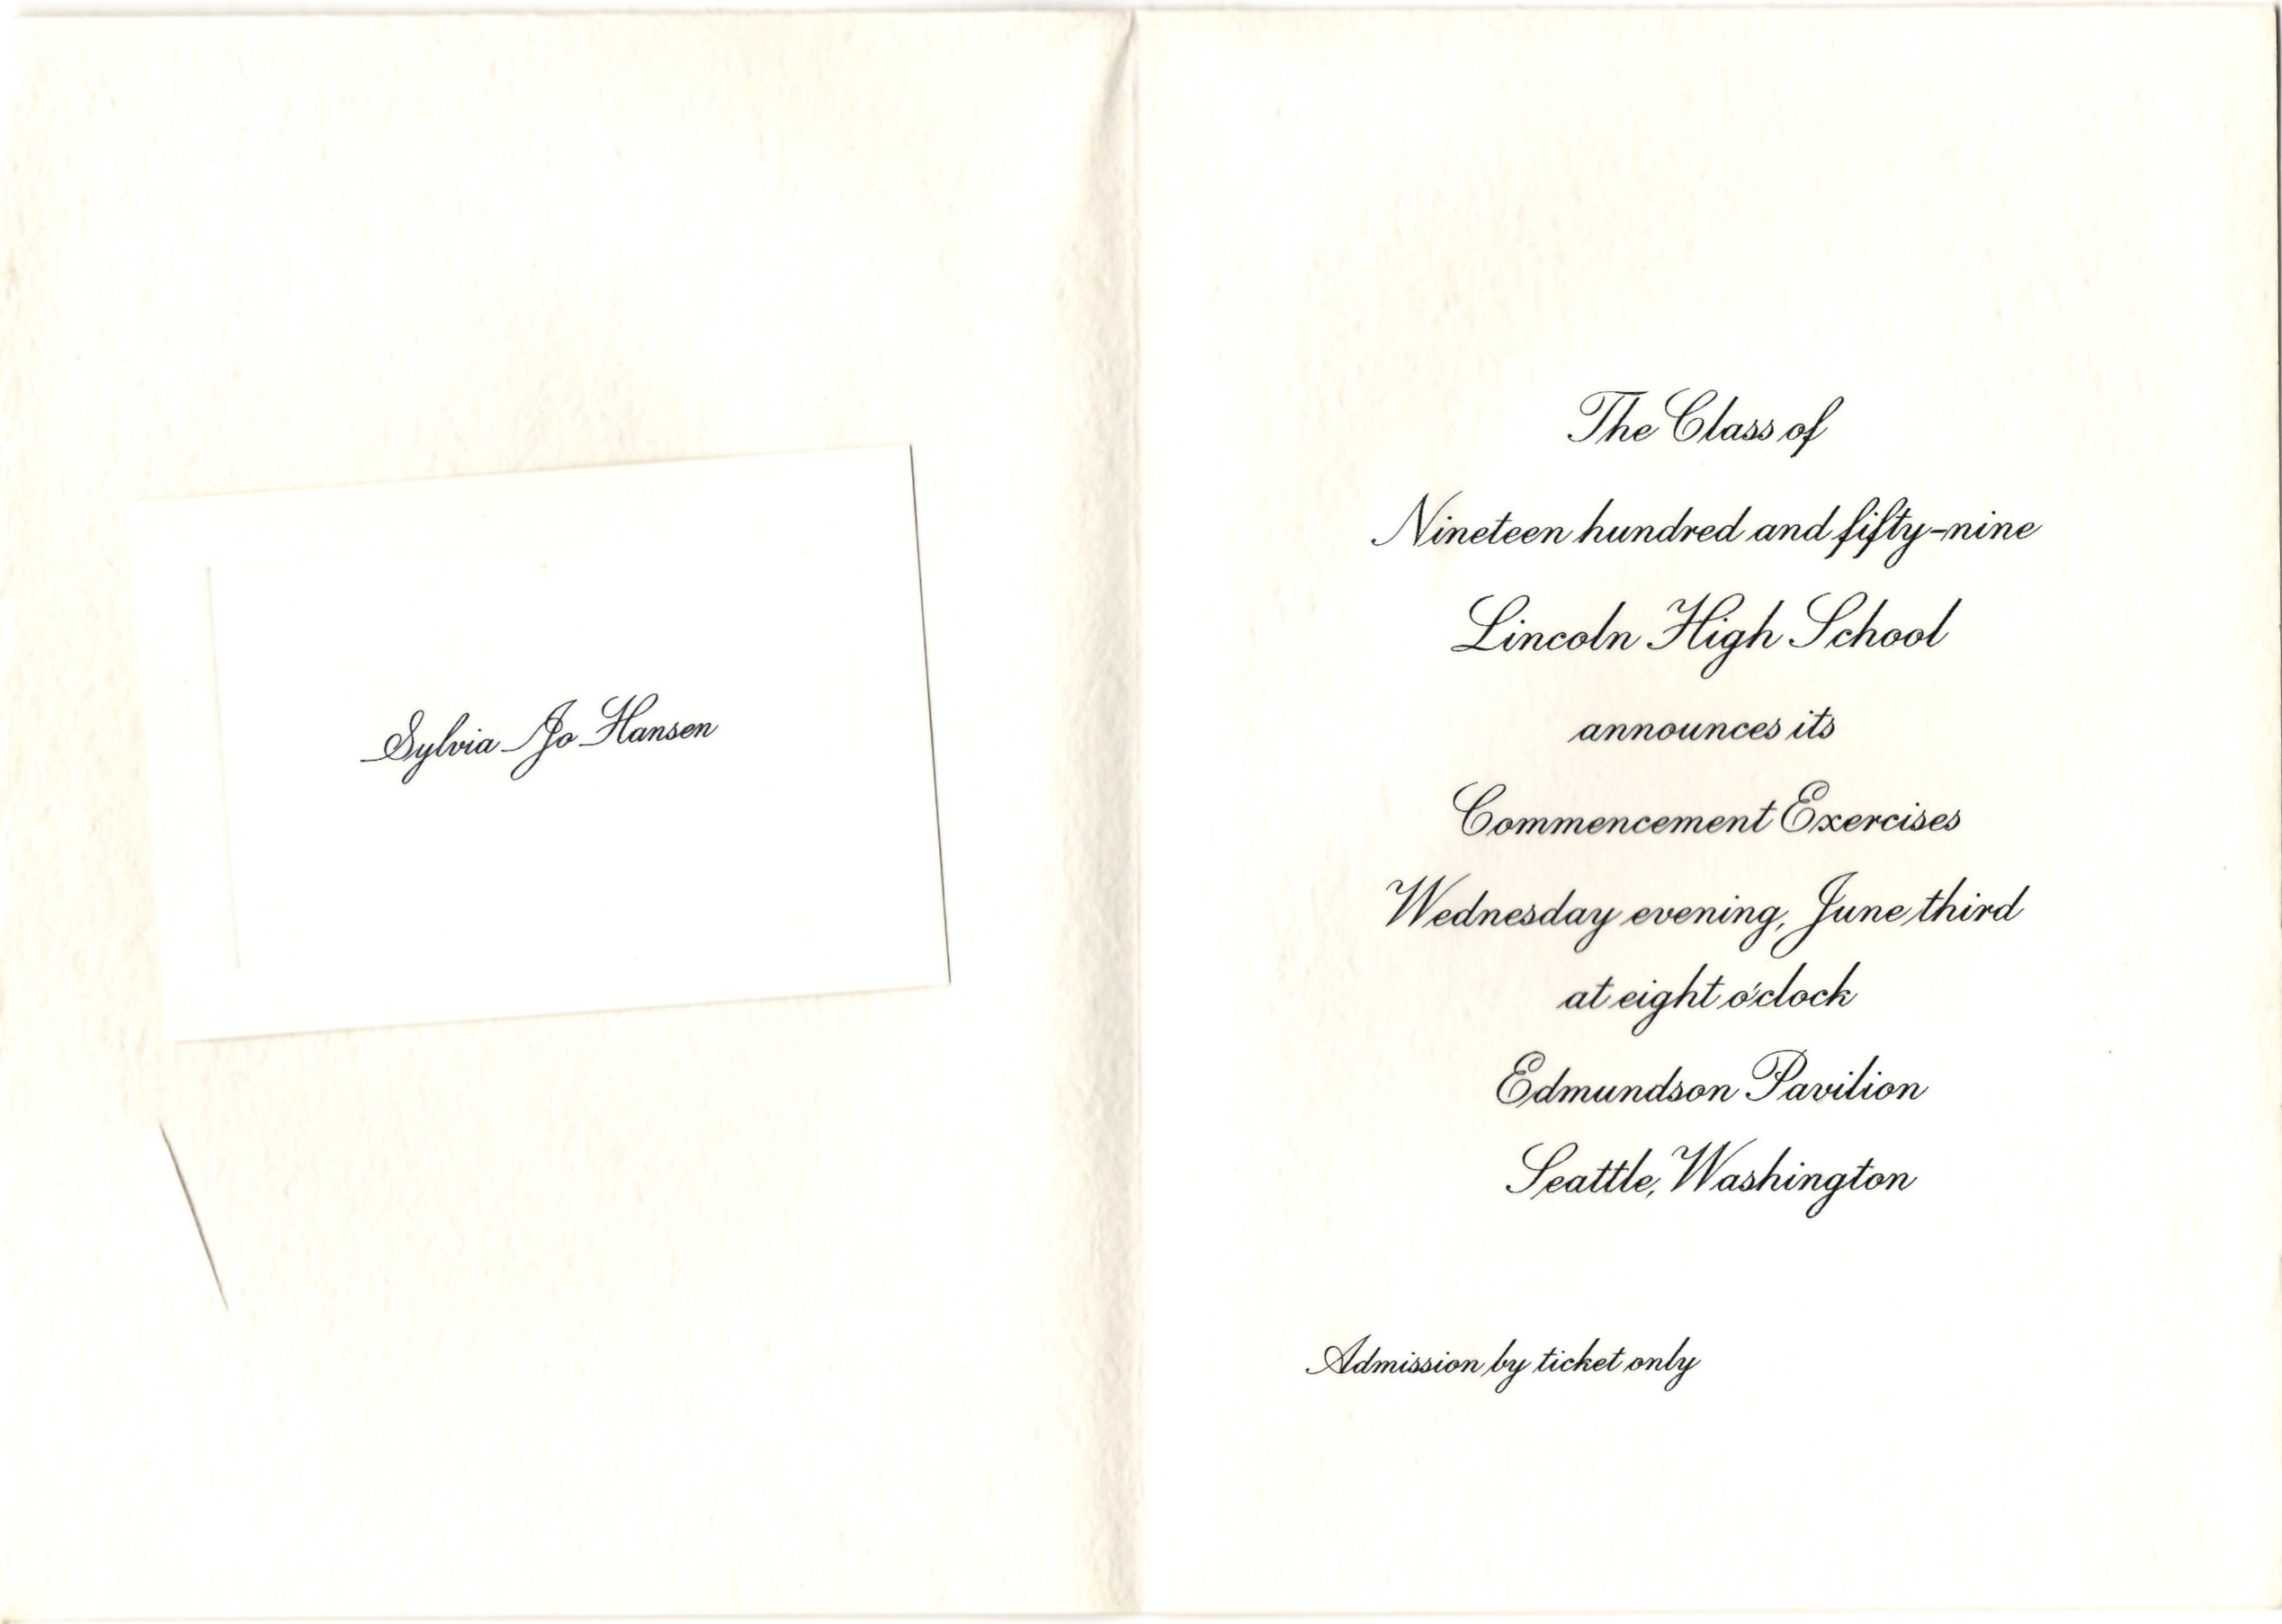 Sylvia Jo Hansen
The Class of
Nineteen hundred and fifty-nine
Lincoln High School
announces its
Commencement Exercises
Wednesday evening, June third
at eight o'clock
Edmundson Pavilion
Seattle, Washington
Admission by ticket only